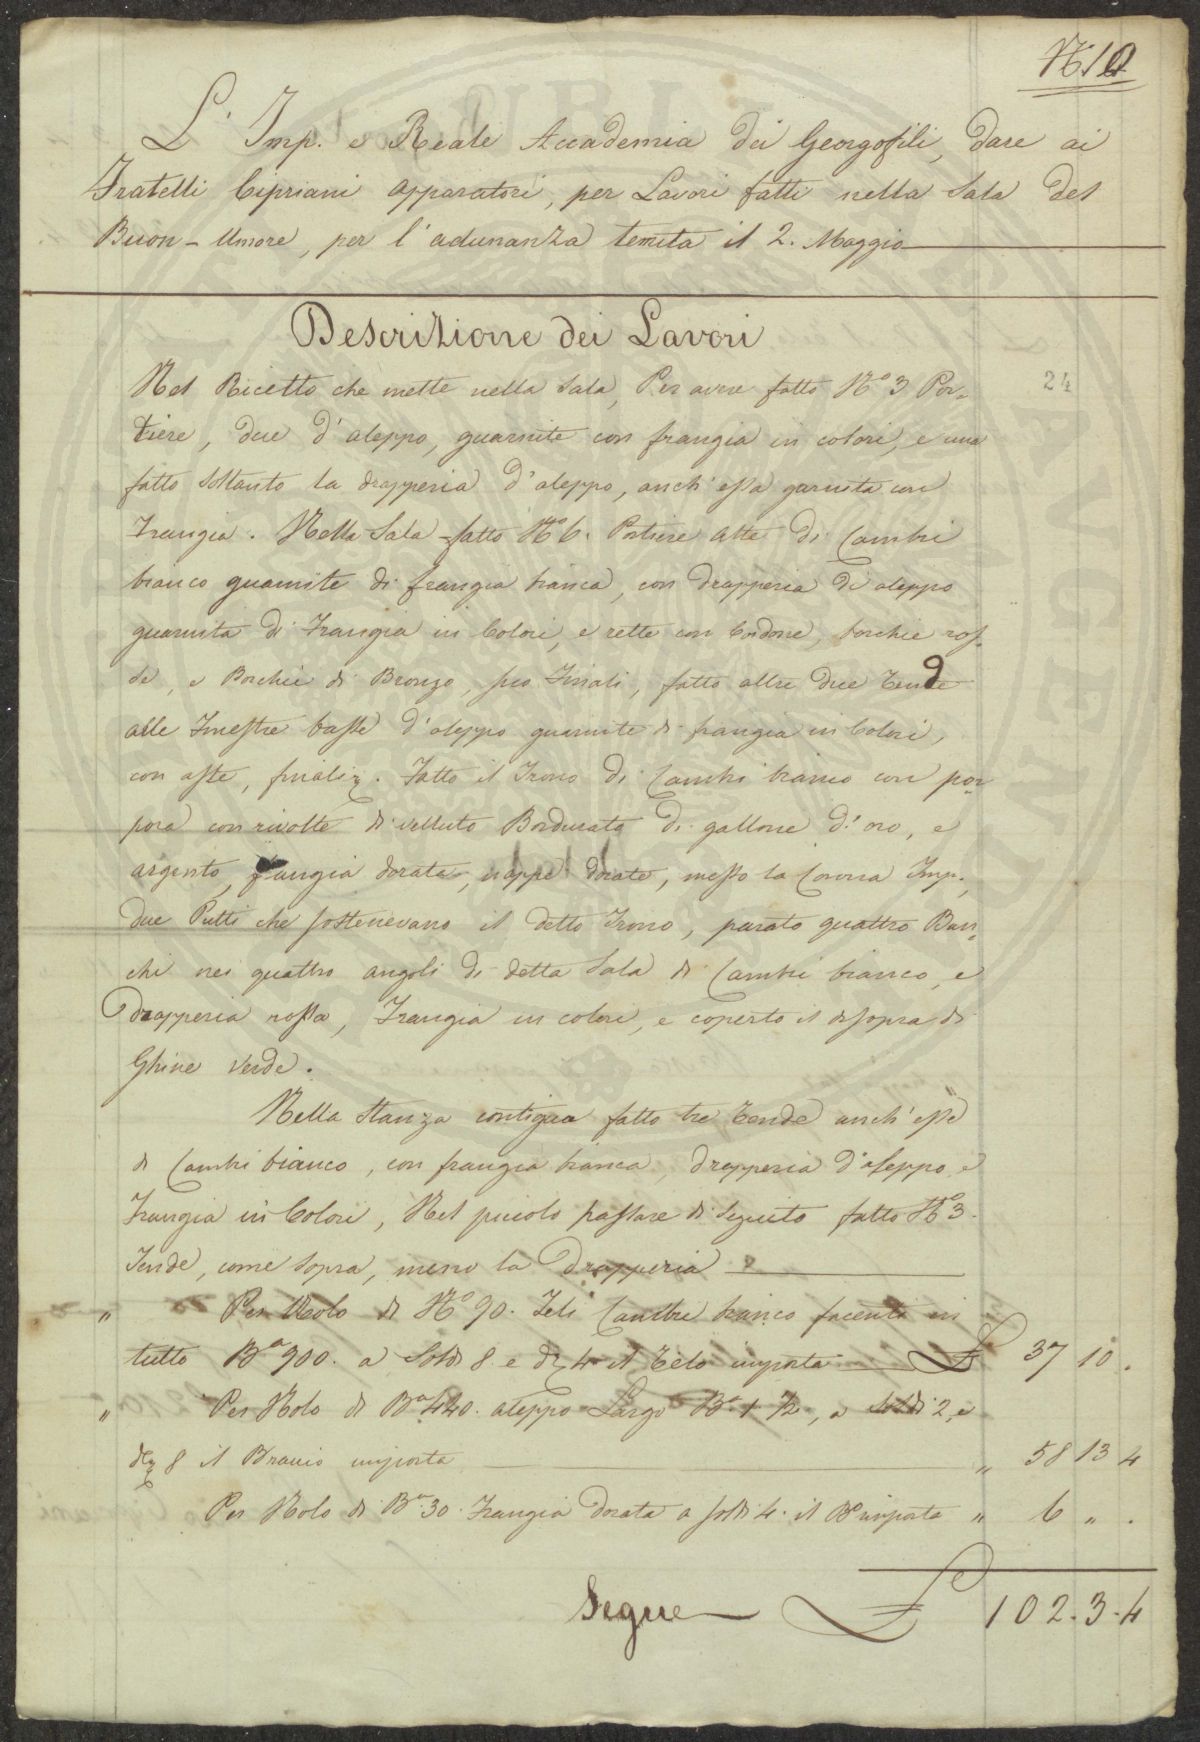 N. 10
L' Imp. e Reale Accademia dei Georgofili, dare ai
Fratelli Cipriani Apparatori, per Lavori fatti nella Sala del
Buon-Umore, per l'adunanza tenuta il 2. Maggio
Descrizione dei Lavori
Nel Ricetto che mette nella Sala, Per avere fatto N.º 3 Por=
tiere, due d'aleppo, guarnite con frangia in colori, e una
fatto soltanto la drapperia d'aleppo, anch'essa guarnita con
Frangia. Nella Sala fatto N.º 6. Portiere Alte di Cambrì
bianco guarnite di frangia bianca, con drapperia di aleppo
guarnita di Frangia in Colori, e rette con Cordone, borchie ros=
se, e Borchie di Bronzo, suo Finali, fatto altre due Tende
alle Finestre basse d'aleppo guarnite di frangia in Colori,
con aste, finali &. Fatto il Trono di Cambrì bianco con por
pora con rivolte di velluto Bordurato di gallone d'oro, e
argento, frangia dorata, nappe dorate, messo la Corona Imp.,
due Putti che sostenevano il detto Trono, parato quattro Ban=
chi nei quattro angoli di detta Sala di Cambrì bianco, e
Drapperia rossa, Frangia in colori, e coperto il disopra di
Ghine verde.
Nella Stanza contigua fatto tre Tende anch'esse
di Cambrì bianco, con frangia bianca, drapperia d'aleppo e
Frangia in Colori, Nel piccolo passare di seguito fatto N.º 3.
Tende, come sopra, meno la Drapperia
" Per Nolo di N.º 90. Teli Cambrì bianco facenti in
tutto B.a 900. a Soldi 8 e d. 4 il Telo importa £ 37 10 .
" Per Nolo di B.a 440. aleppo Largo B.a 1 1/2, a Soldi 2, e
d. 8 il Braccio importa " 58 13 4
Per Nolo di B.a 30. Frangia Dorata a soldi 4. il B.o importa " 6 " .
Segue £ 102.3.4
24